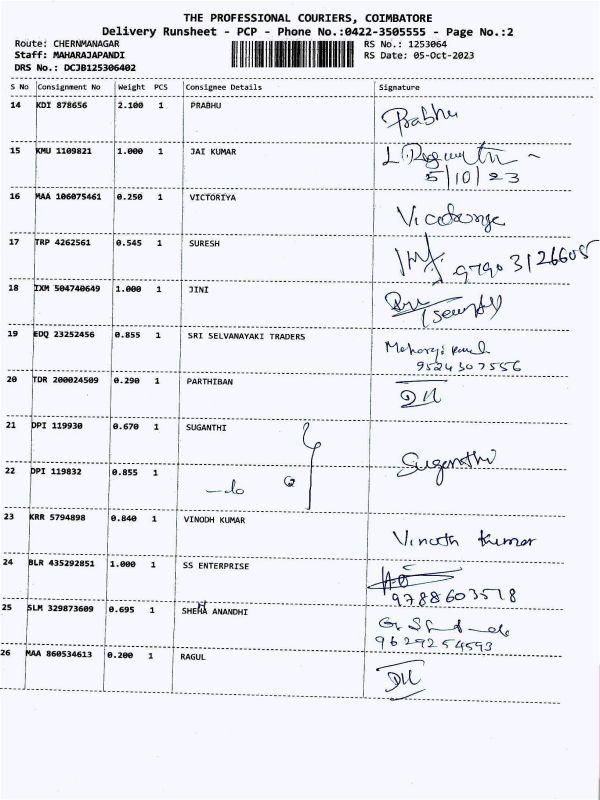 THE PROFESSIONAL COURIERS, COIMBATORE
Delivery Runsheet - PCP - Phone No.:0422-3505555 - Page No.:2
Route: CHERNMANAGAR RS No.: 1253064
Staff: MAHARAJAPANDI RS Date: 05-Oct-2023
DRS No.: DCJB125306402
S No Consignment No Weight PCS Consignee Details Signature
14 KDI 878656 2.100 1 PRABHU Prabhu
15 KMU 1109821 1.000 1 JAI KUMAR
5/10/23
16 MAA 106075461 0.250 1 VICTORIYA
17 TRP 4262561 0.545 1 SURESH 97903126605
18 IXM 504740649 1.000 1 JINI
19 EDQ 23252456 0.855 1 SRI SELVANAYAKI TRADERS
9524307556
20 TDR 200024509 0.290 1 PARTHIBAN
21 DPI 119930 0.670 1 SUGANTHI Suganthi
22 DPI 119832 0.855 1
-do
23 KRR 5794898 0.840 1 VINODH KUMAR Vinoth Kumar
24 BLR 435292851 1.000 1 SS ENTERPRISE
9788603518
25 SLM 329873609 0.695 1 SHEHA ANANDHI
9629254593
26 MAA 860534613 0.200 1 RAGUL